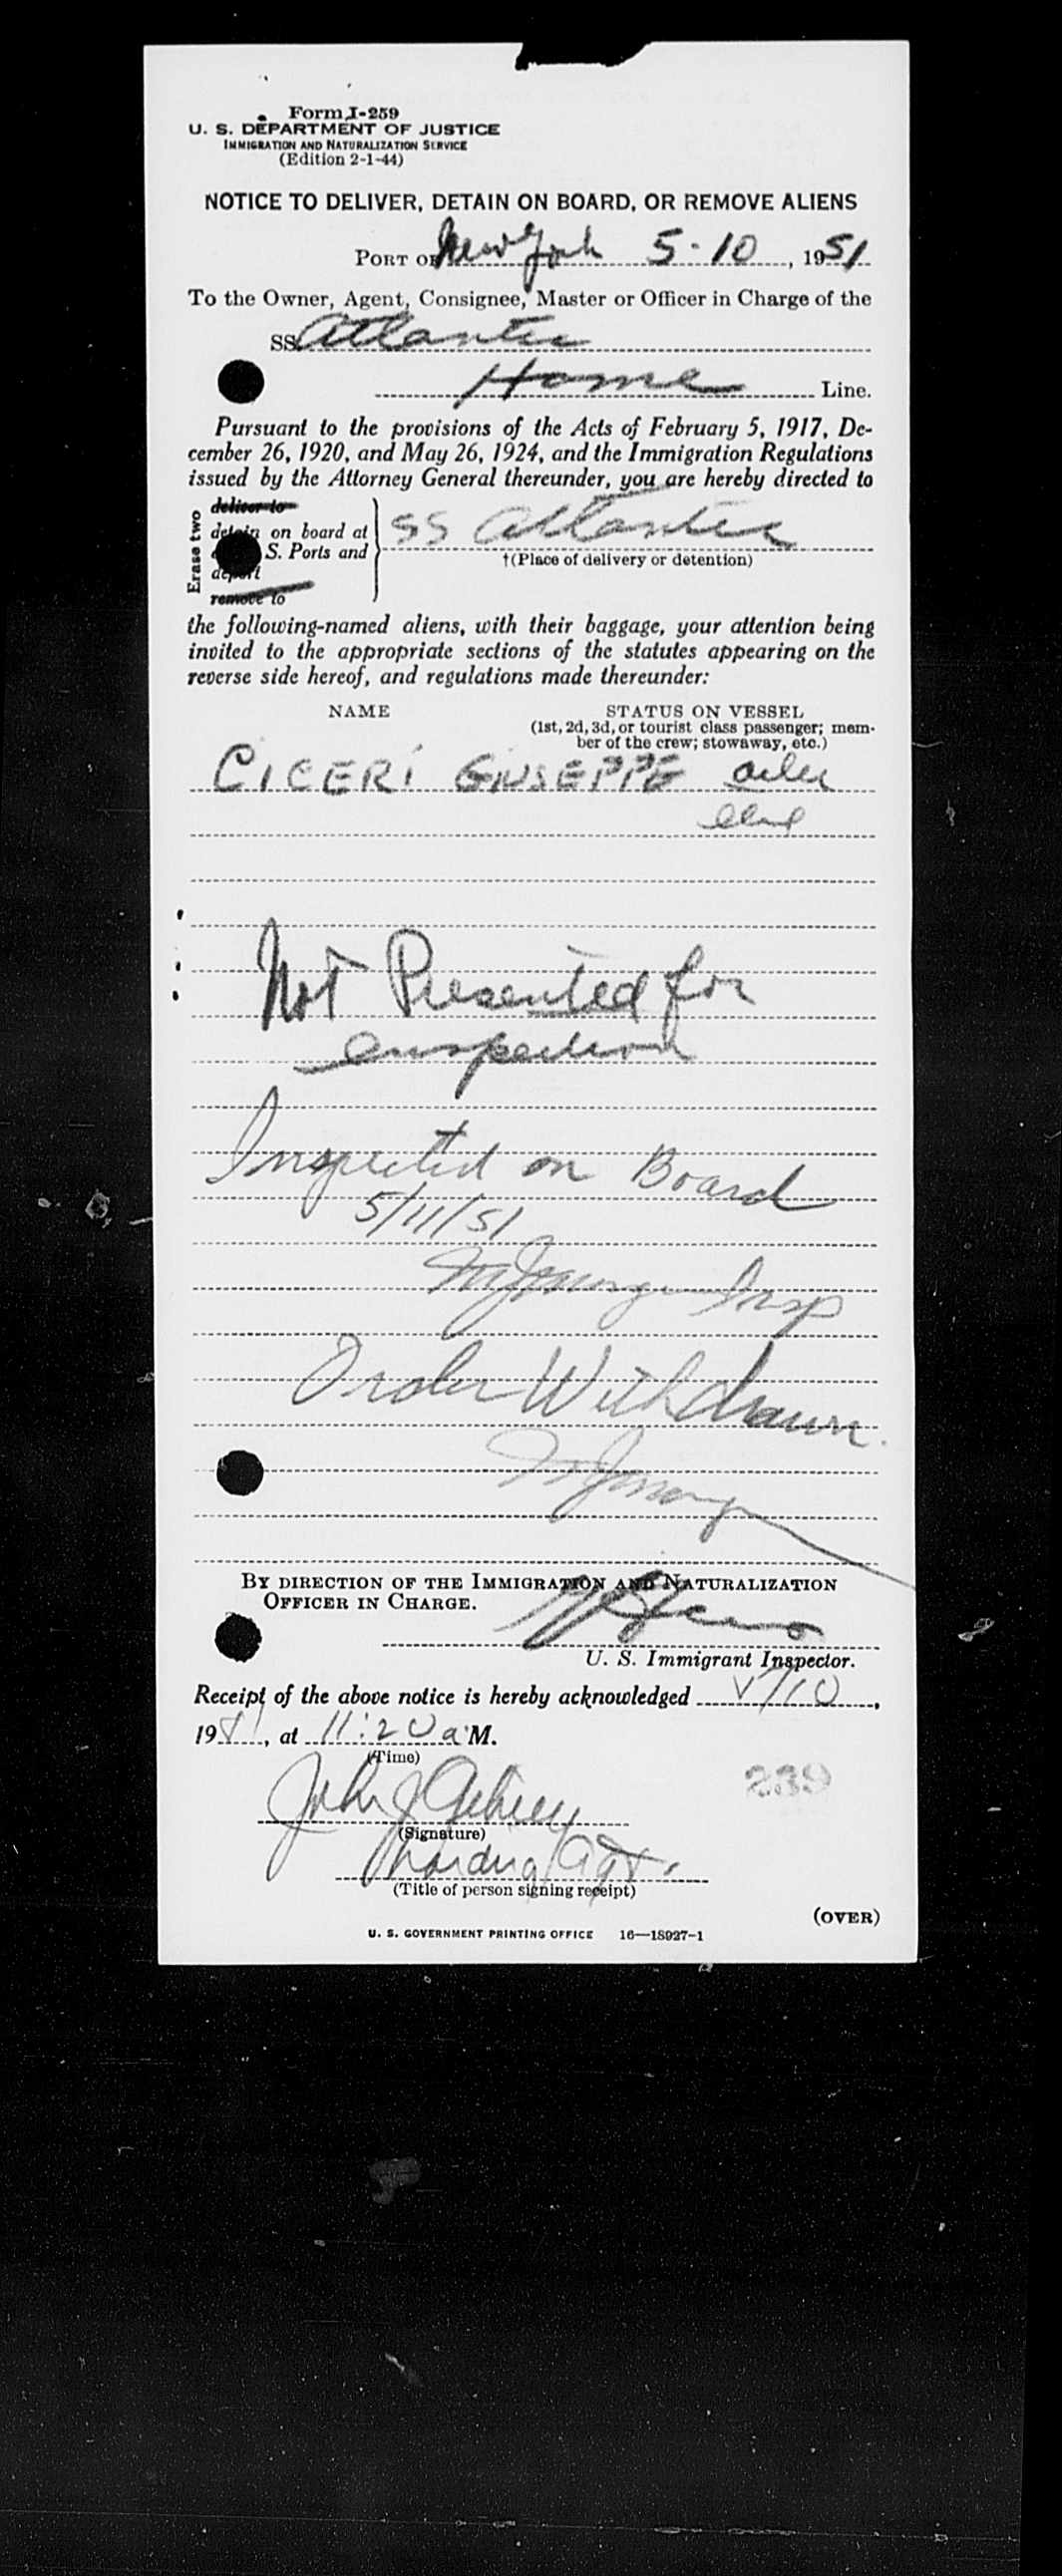 Form I-259
U. S. DEPARTMENT OF JUSTICE
IMMIGRATION AND NATURALIZATION SERVICE
(Edition 2-1-44)
NOTICE TO DELIVER, DETAIN ON BOARD, OR REMOVE ALIENS
PORT OF New York 5-10, 1951
To the Owner, Agent, Consignee, Master or Officer in Charge of the
SS Atlantic
Home Line.
Pursuant to the provisions of the Acts of February 5, 1917, De-
cember 26, 1920, and May 26, 1924, and the Immigration Regulations
issued by the Attorney General thereunder, you are hereby directed to
Erase two
deliver to
detain on board at
S. Ports and
deport
remove to
SS Atlantic
†(Place of delivery or detention)
the following-named aliens, with their baggage, your attention being
invited to the appropriate sections of the statutes appearing on the
reverse side hereof, and regulations made thereunder:
NAME STATUS ON VESSEL
(1st, 2d, 3d, or tourist class passenger; mem-
ber of the crew; stowaway, etc.)
CICERI GIUSEPPE
Not Presented for
inspection
Inspected on Board
5/11/51
Insp
Order Withdrawn.
BY DIRECTION OF THE IMMIGRATION AND NATURALIZATION
OFFICER IN CHARGE.
U. S. Immigrant Inspector.
Receipt of the above notice is hereby acknowledged 5/10,
1951, at 11:20 a M.
(Time)
239
John J
(Signature)
Agt.
(Title of person signing receipt)
(OVER)
U. S. GOVERNMENT PRINTING OFFICE 16—18927-1